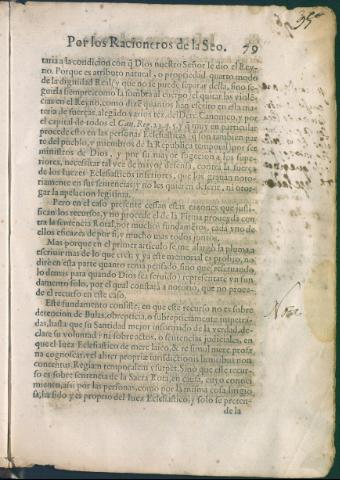 Por los Racioneros de la Seo. 79
taria a la condicion con q̃ Dios nuestro Señor le dio el Rey-
no. Porque es atributo natural, o propriedad quarto modo
de la dignidad Real, y que no se puede separar della, sino se-
guirla siempre, como la sombra al cuerpo, el quitar las violē-
cias en el Reyno, como dizẽ quantos han escrito en esta ma-
teria de fuerças, alegado varios tex. del Derec. Canonico, y por
el capital de todos el Cap. Reg. 23. q. 5. y q̃ muy en particular
procede esto en las personas Eclesiasticas, q̃ son tambien par
te del pueblo, y miembros de la Republica temporal, por ser
ministros de Dios, y por su mayor sugecion a los supe-
riores, necesitar tal vez de mayor defensa, contra la fuerça
de los Iuezes Eclesiasticos inferiores, que los gravan noto-
riamente en sus sentencias, y no les quieren deferir, ni otor-
gar la apelacion legitima.
Pero en el caso presente cessan estas razones que justi-
fican los recursos, y no procede el de la Firma proveida con
tra la sentencia Rotal, por muchos fundamētos, cada vno de
ellos eficazes de por si, y mucho mas todos juntos.
Mas porque en el primer articulo se me alargò la pluma a
escrivir mas de lo que creì, y ya este memorial es prolixo, no
dirè en esta parte quanto tenia pensado, sino que reservando
lo demàs para quando Dios sea servido, representarè vn fun
damento solo, por el qual constarà a notorio, que no proce-
de el recurso en este caso.
Este fundamento consiste, en que este recurso no es sobre
detencion de Bulas, obrepticia, o subrepticiamente impetra-
das, hasta que su Santidad mejor informado de la verdad, de-
clare su voluntad; ni sobre actos, o sentencias judiciales, en
que el Iuez Eclesiastico de mere laico, & re simul mere profa
na cognoscat, vel aliter propriæ iurisdictionis limitibus non
contentus, Regiam temporalem vsurpet. Sino que este recur-
so es sobre sentencia de la Sacra Rota, en causa, cuyo conoci-
miento, assi por las personas, como por la misma cosa litigio
sa, ha sido y es proprio del Iuez Eclesiastico, y solo se preten-
de la
Nota